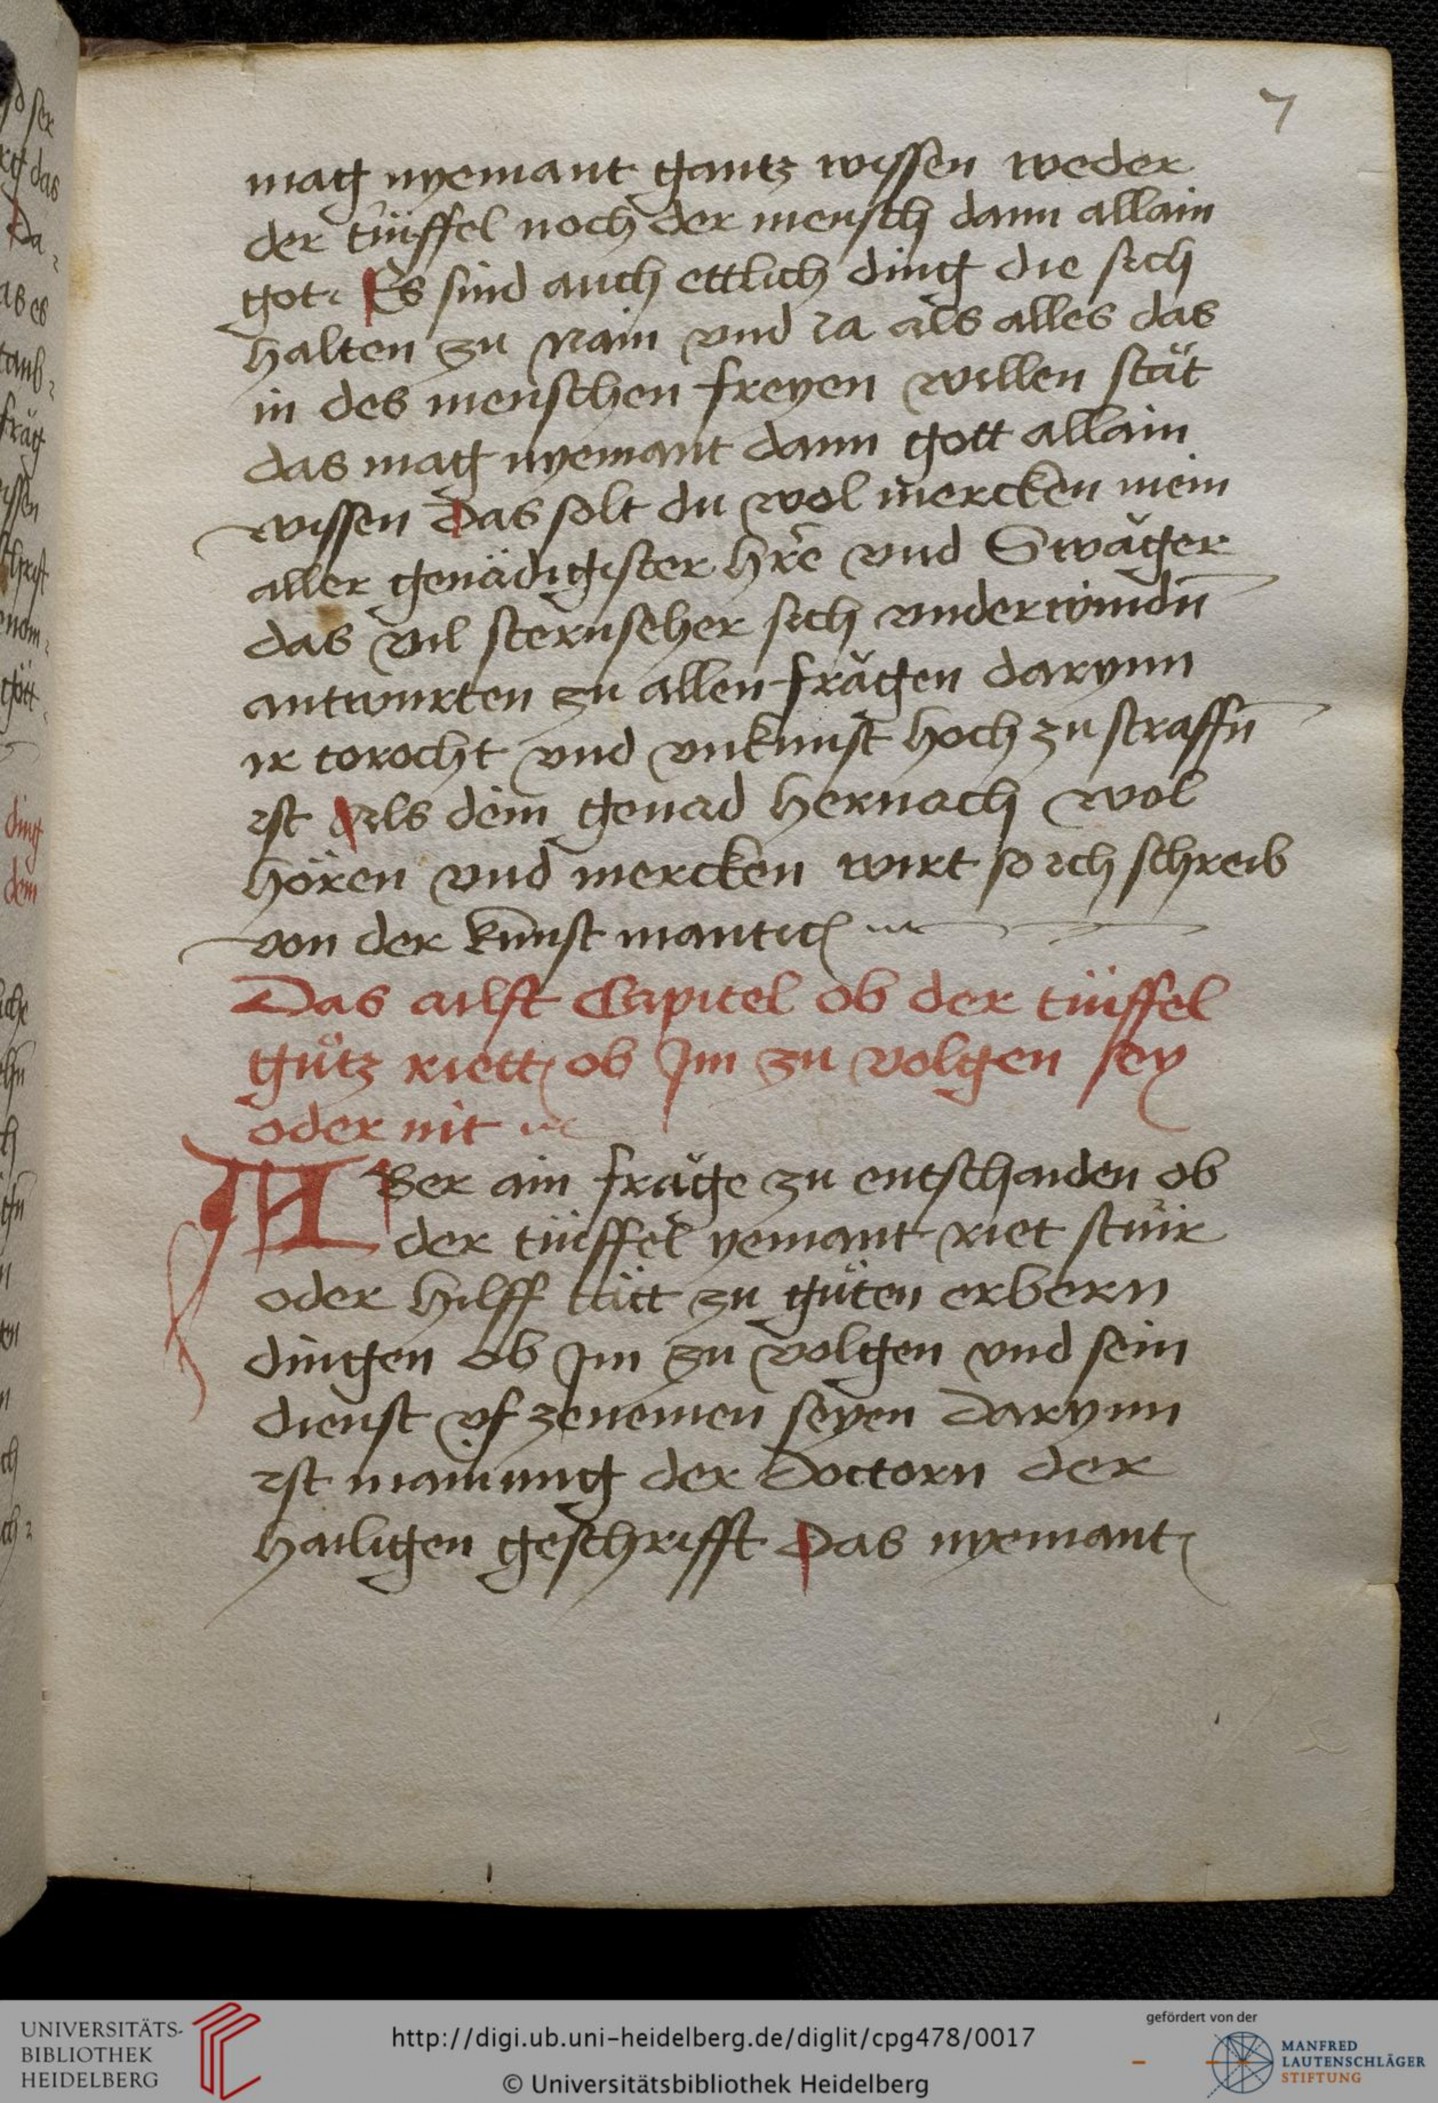 7
mag nyemant gantz wissen weder
der tüffel noch der mensch dann allain
got. Es sind auch ettlich ding die sich
halten zu Nain vnd Ja als alles das
in des menschen freyen willen stät
das mag nyemant dann gott allain
wissen Das solt du wol mercken mein
aller genädigister hre vnd Swäger
das vil sternseher sich vnderwindn̄
antwurten zu allen frägen darynn
ir torocht vnd vnkunst hoch zu straffn̄
ist Als dein genad hernach wol
hören vnd mercken wirt so ich schreib
von der kunst mantick
Das ailft Capitel ob der tüffel
gůtz riett ob Im zu volgen sey
oder nit
Aber ain fräge zu entschaiden ob
der tüffel yemant riet stür
oder hilff tätt zu gůten erbern
dingen ob Im zu volgen vnd sein
dienst vf zenemen seyen Darynn
ist mainung der Doctorn der
hailigen geschrifft Das nyemant
UNIVERSITÄTS-
BIBLIOTHEK
HEIDELBERG
http://digi.ub.uni-heidelberg.de/diglit/cpg478/0017
© Universitätsbibliothek Heidelberg
gefördert von der
MANFRED
LAUTENSCHLÄGER
STIFTUNG